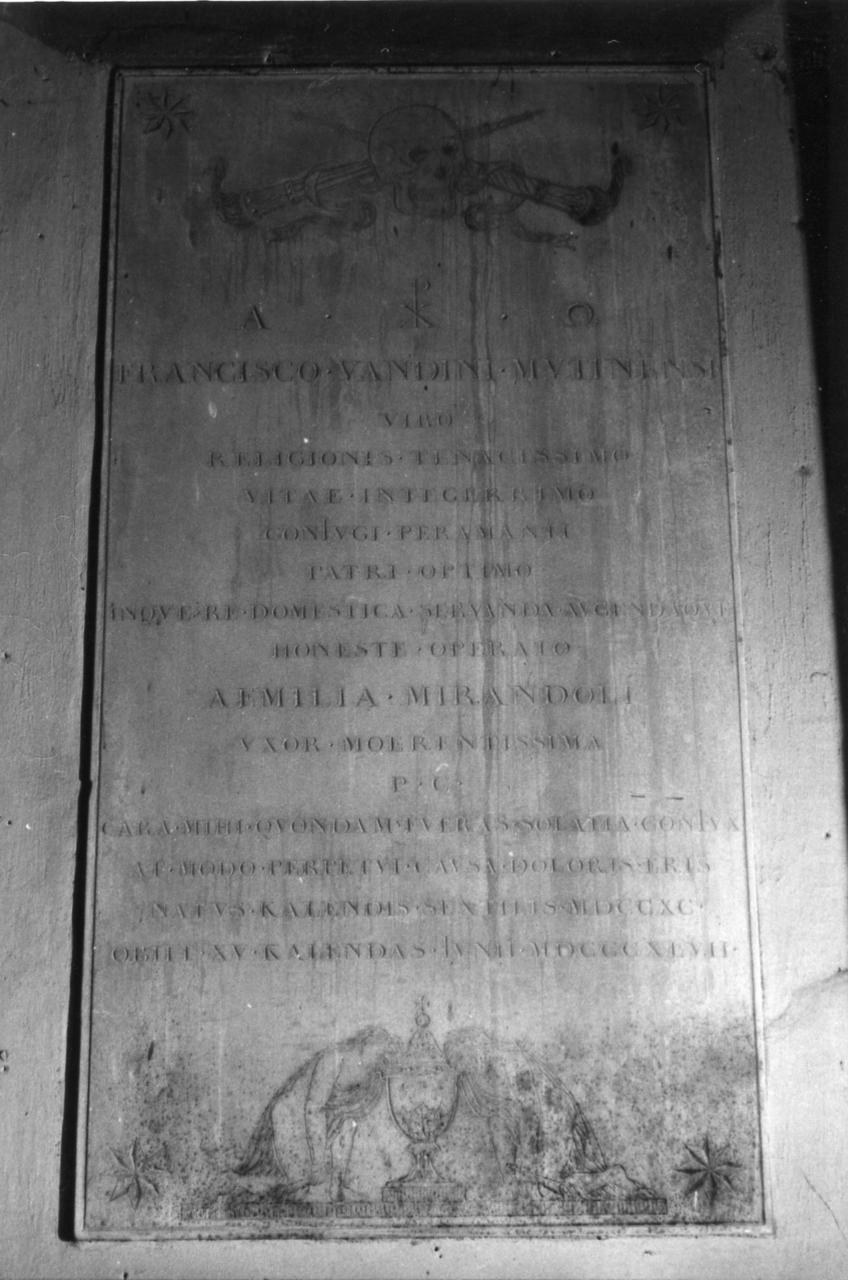 Α · ☧ · Ω
FRANCISCO · VANDINI · MVTINENSI
VIRO
RELIGIONIS · TENACISSIMO
VITAE · INTEGERRIMO
CONIVGI · PERAMANTI
PATRI · OPTIMO
INQVE · RE · DOMESTICA · SERVANDA · AVGENDAQVE
HONESTE · OPERATO
AEMILIA · MIRANDOLI
VXOR · MOERENTISSIMA
P · C ·
CARA · MIHI · QVONDAM · FVERAS · SOLATIA · CONIVX
AT · MODO · PERPETVI · CAVSA · DOLORIS · ERIS
NATVS · KALENDIS · SEXTILIS · MDCCXC ·
OBIIT · XV · KALENDAS · IVNII · MDCCCXLVII ·